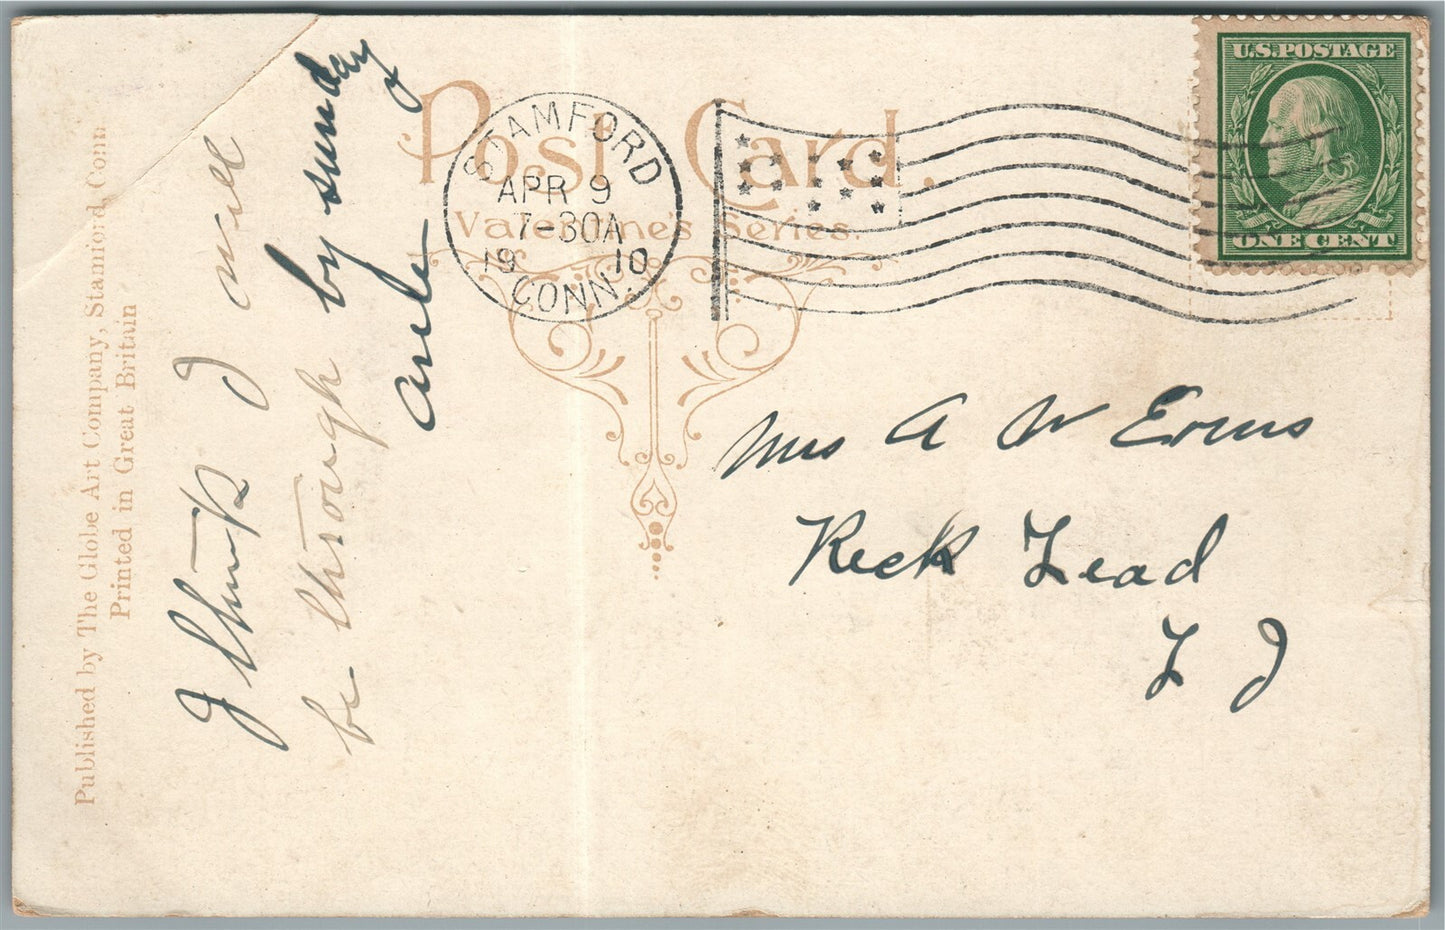 Post Card.
Valentine's Series.
STAMFORD
APR 9
7-30A
19 10
CONN.
U.S. POSTAGE
ONE CENT
Published by The Globe Art Company, Stamford, Conn
Printed in Great Britain
I think I will
be through
by sunday
Mrs A W Evens
Rick Lead
L I